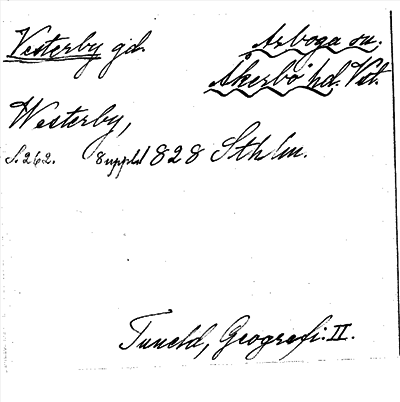 Vesterby gd. Arboga sn.
Åkerbo hd. Vstl.
Westerby,
S. 262. 8 uppl. 1828 Sthlm.
Tuneld, Geografi. II.